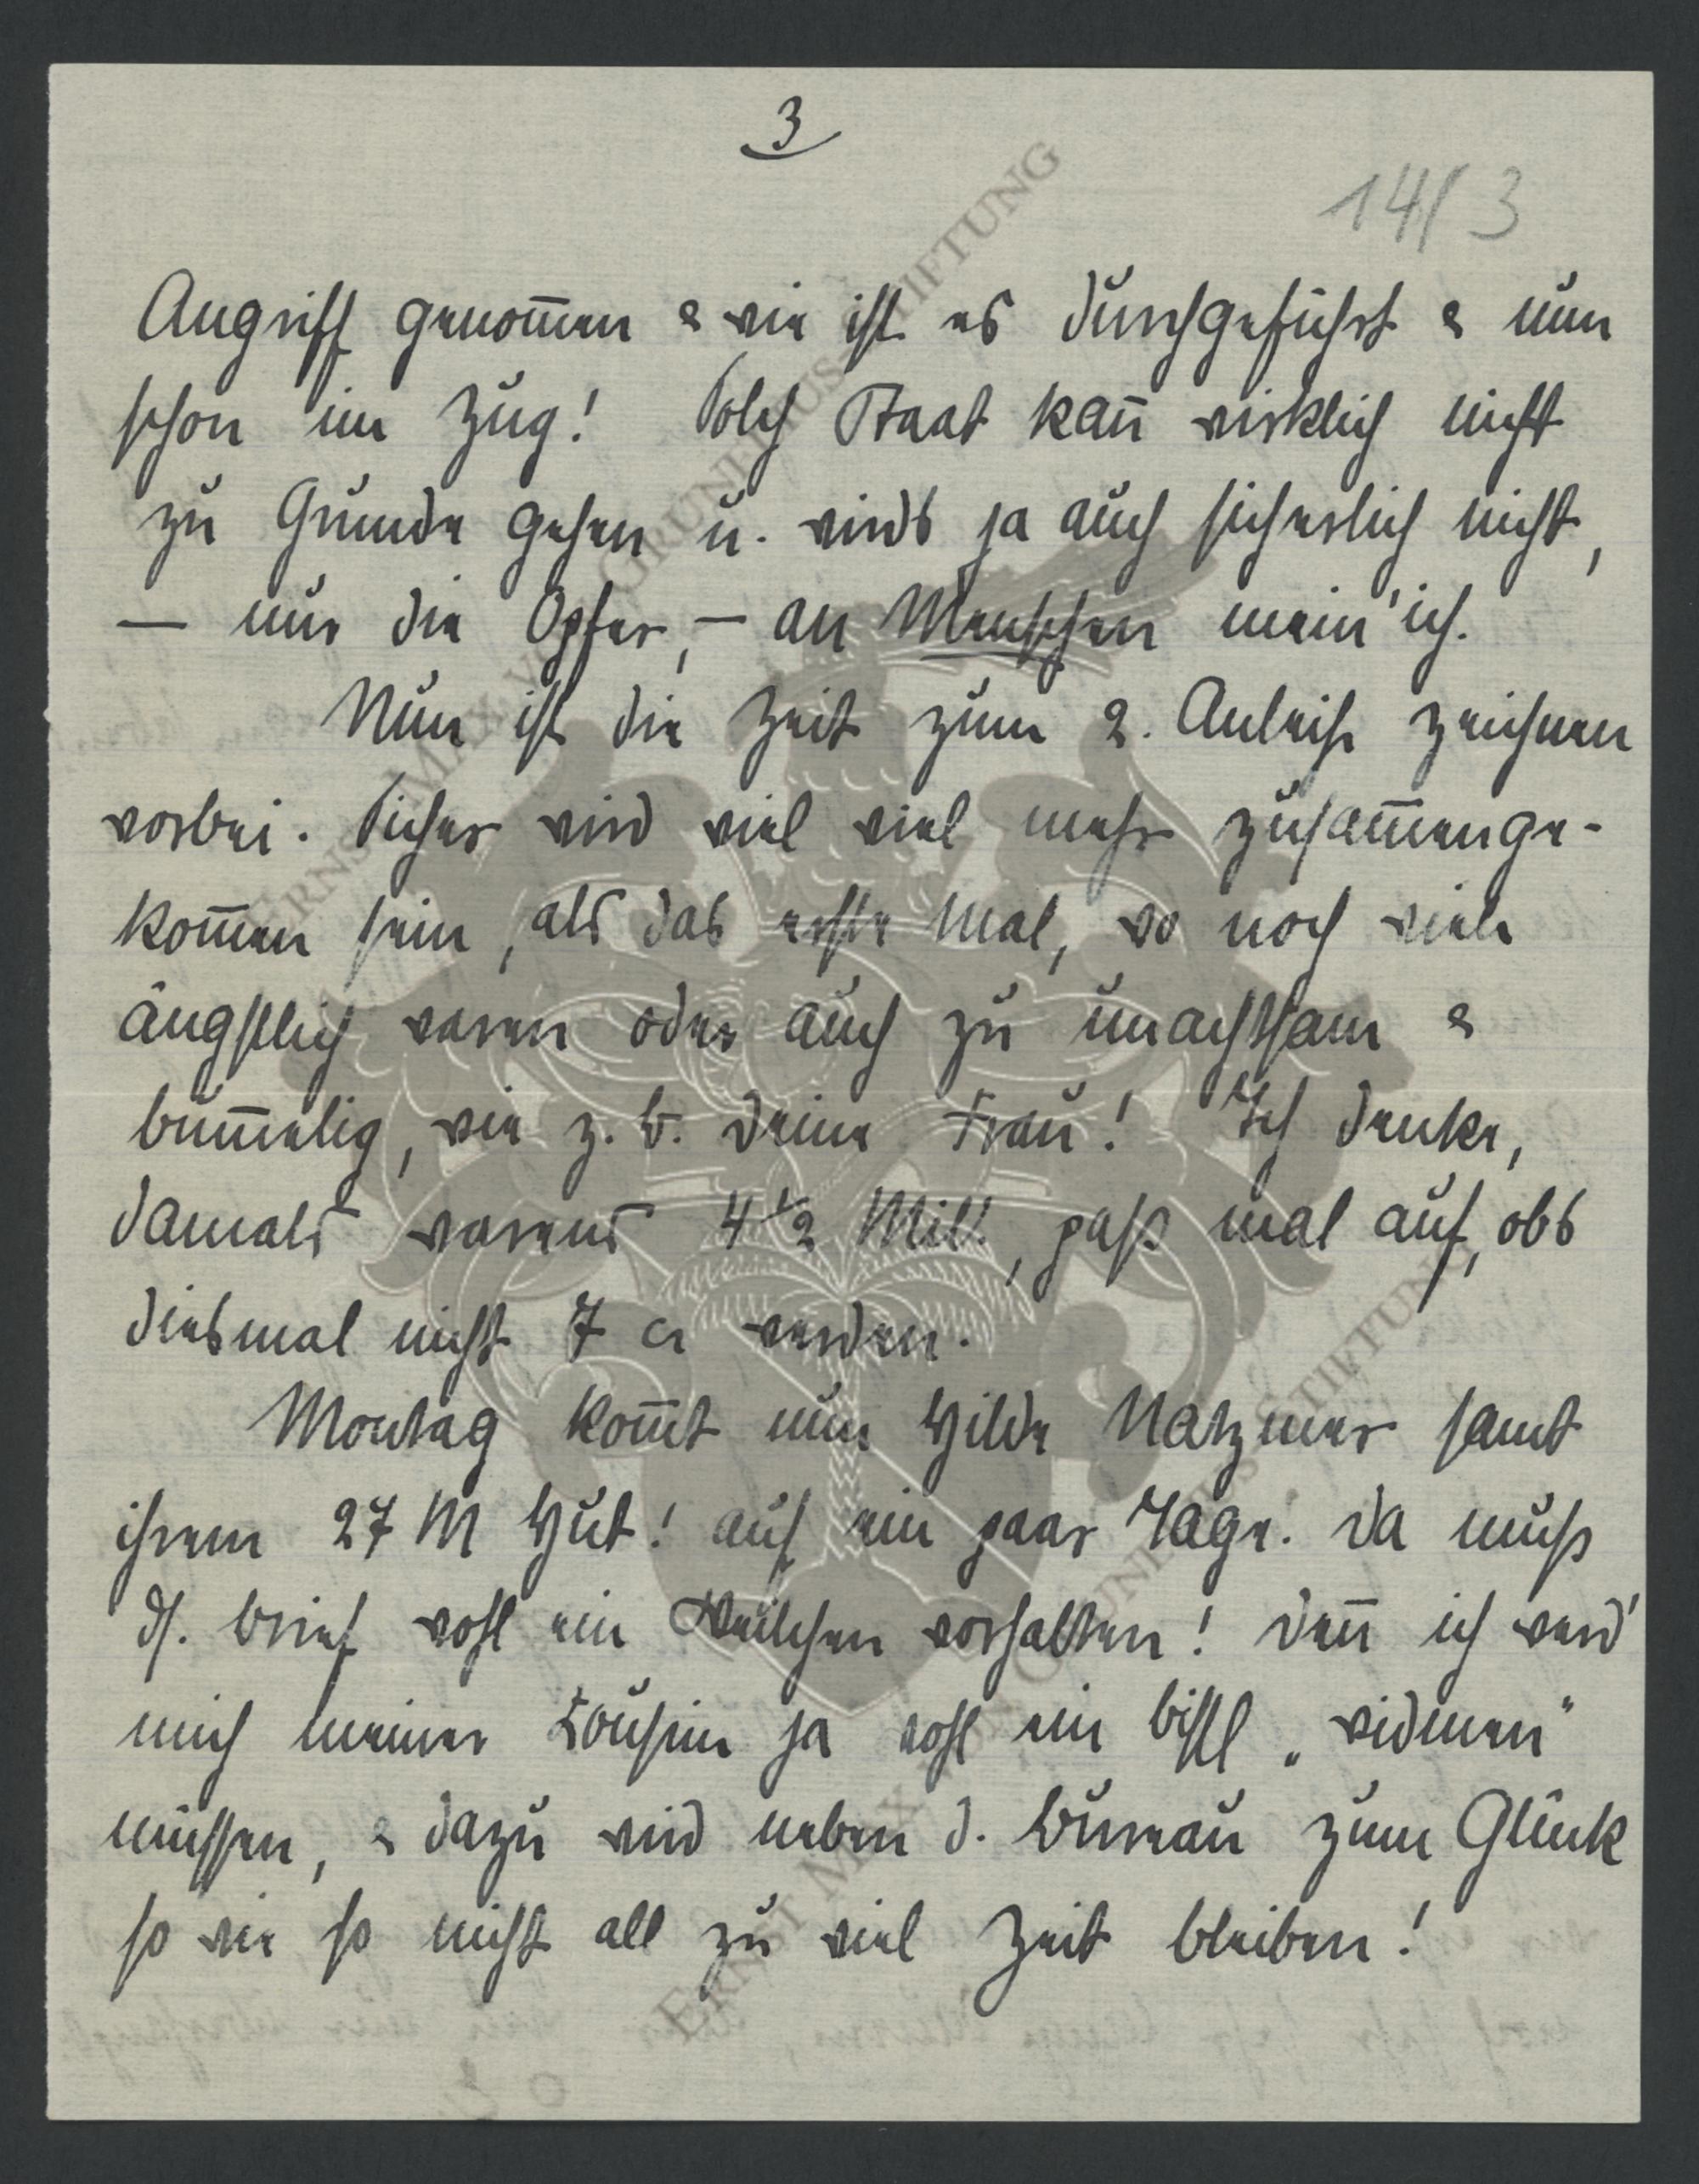 3
14/3
Angriff genom̅en & wie ist es durchgeführt & nun
schon im Zug! Solch Staat kan̅ wirklich nicht
zu Grunde gehen u. wirds ja auch sicherlich nicht,
— nur die Opfer, — an Menschen mein' ich.
Nun ist die Zeit zum 2. Anleihe zeichnen
vorbei. Sicher wird viel viel mehr zusam̅enge-
kom̅en sein, als das erste Mal, wo noch viele
ängstlich waren oder auch zu unachtsam &
bum̅elig, wie z. B. Deine Frau! Ich denke,
damals warens 4 1/2 Mill., paß mal auf, obs
diesmal nicht 7 werden.
Montag kom̅t nun Hilde Natzmer samt
ihrem 27 M Hut! auf ein paar Tage. Da muß
ds. Brief wohl ein Weilchen vorhalten! Den̅ ich werd'
mich meiner Cousine ja wohl ein bissl „widmen"
müssen, & dazu wird neben d. Bureau zum Glück
so wie so nicht all zu viel Zeit bleiben!
ERNST MAX VON GRUNELIUS-STIFTUNG
ERNST MAX VON GRUNELIUS-STIFTUNG